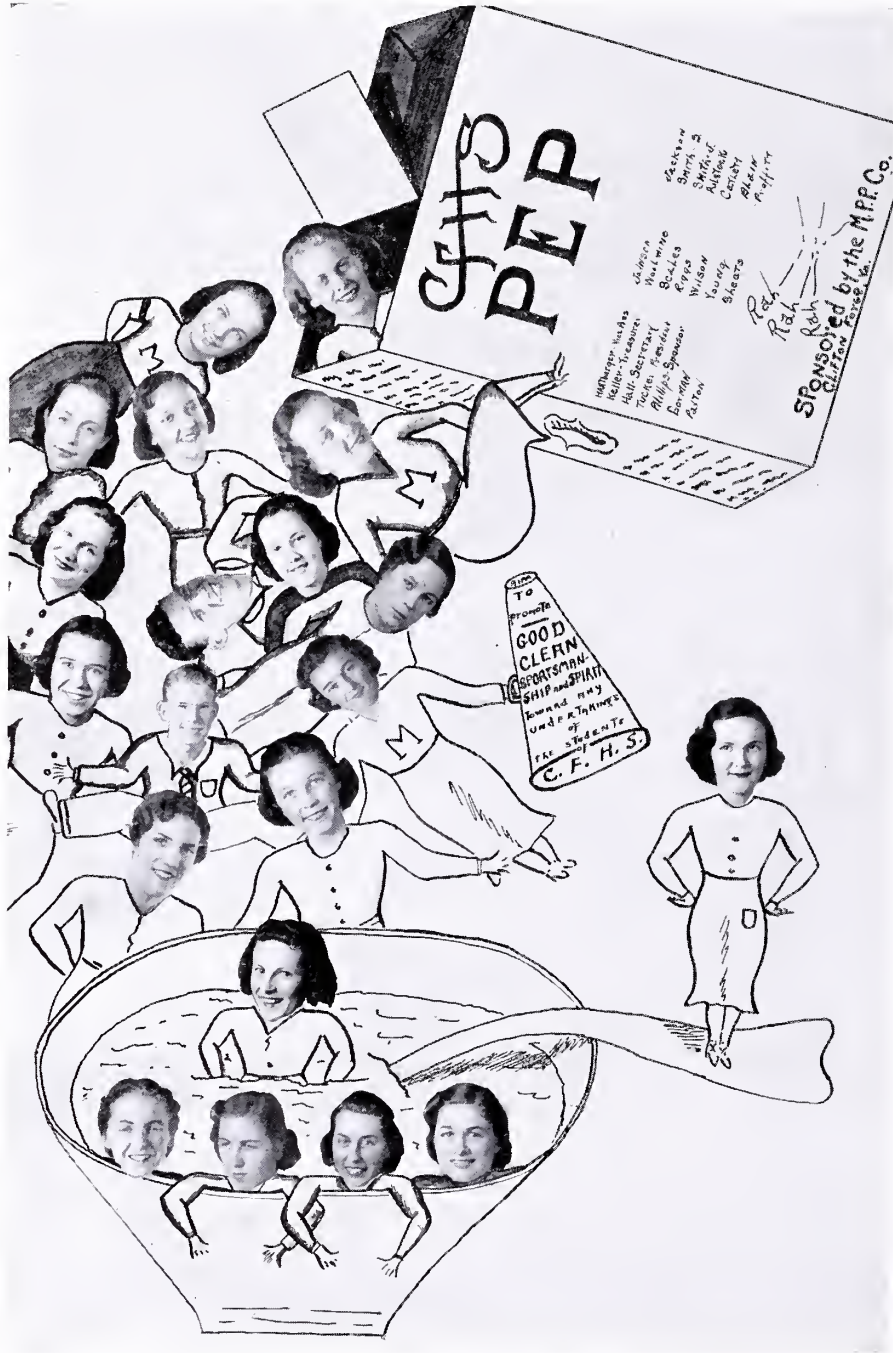 CFHS
PEP
Keller-Treasurer
Hall-Secretary
Tucker-President
Philips-Sponsor
Gorman
Patton
Jamison
Woolwine
Scales
Ripps
Wilson
Young
Sheats
Jackson
Smith-S.
Smith-J.
Catlett
Blain
Proffitt
Rah
Rah
Rah
SPONSORed by the M.P.P. Co.
CLIFTON FORGE, Va.
M
M
M
aim
TO
promote
GOOD
CLEAN
SPORTSMAN-
SHIP and SPIRIT
TOWARD ANY
UNDERTAKINGS
OF
THE STUDENTS
OF
C. F. H. S.